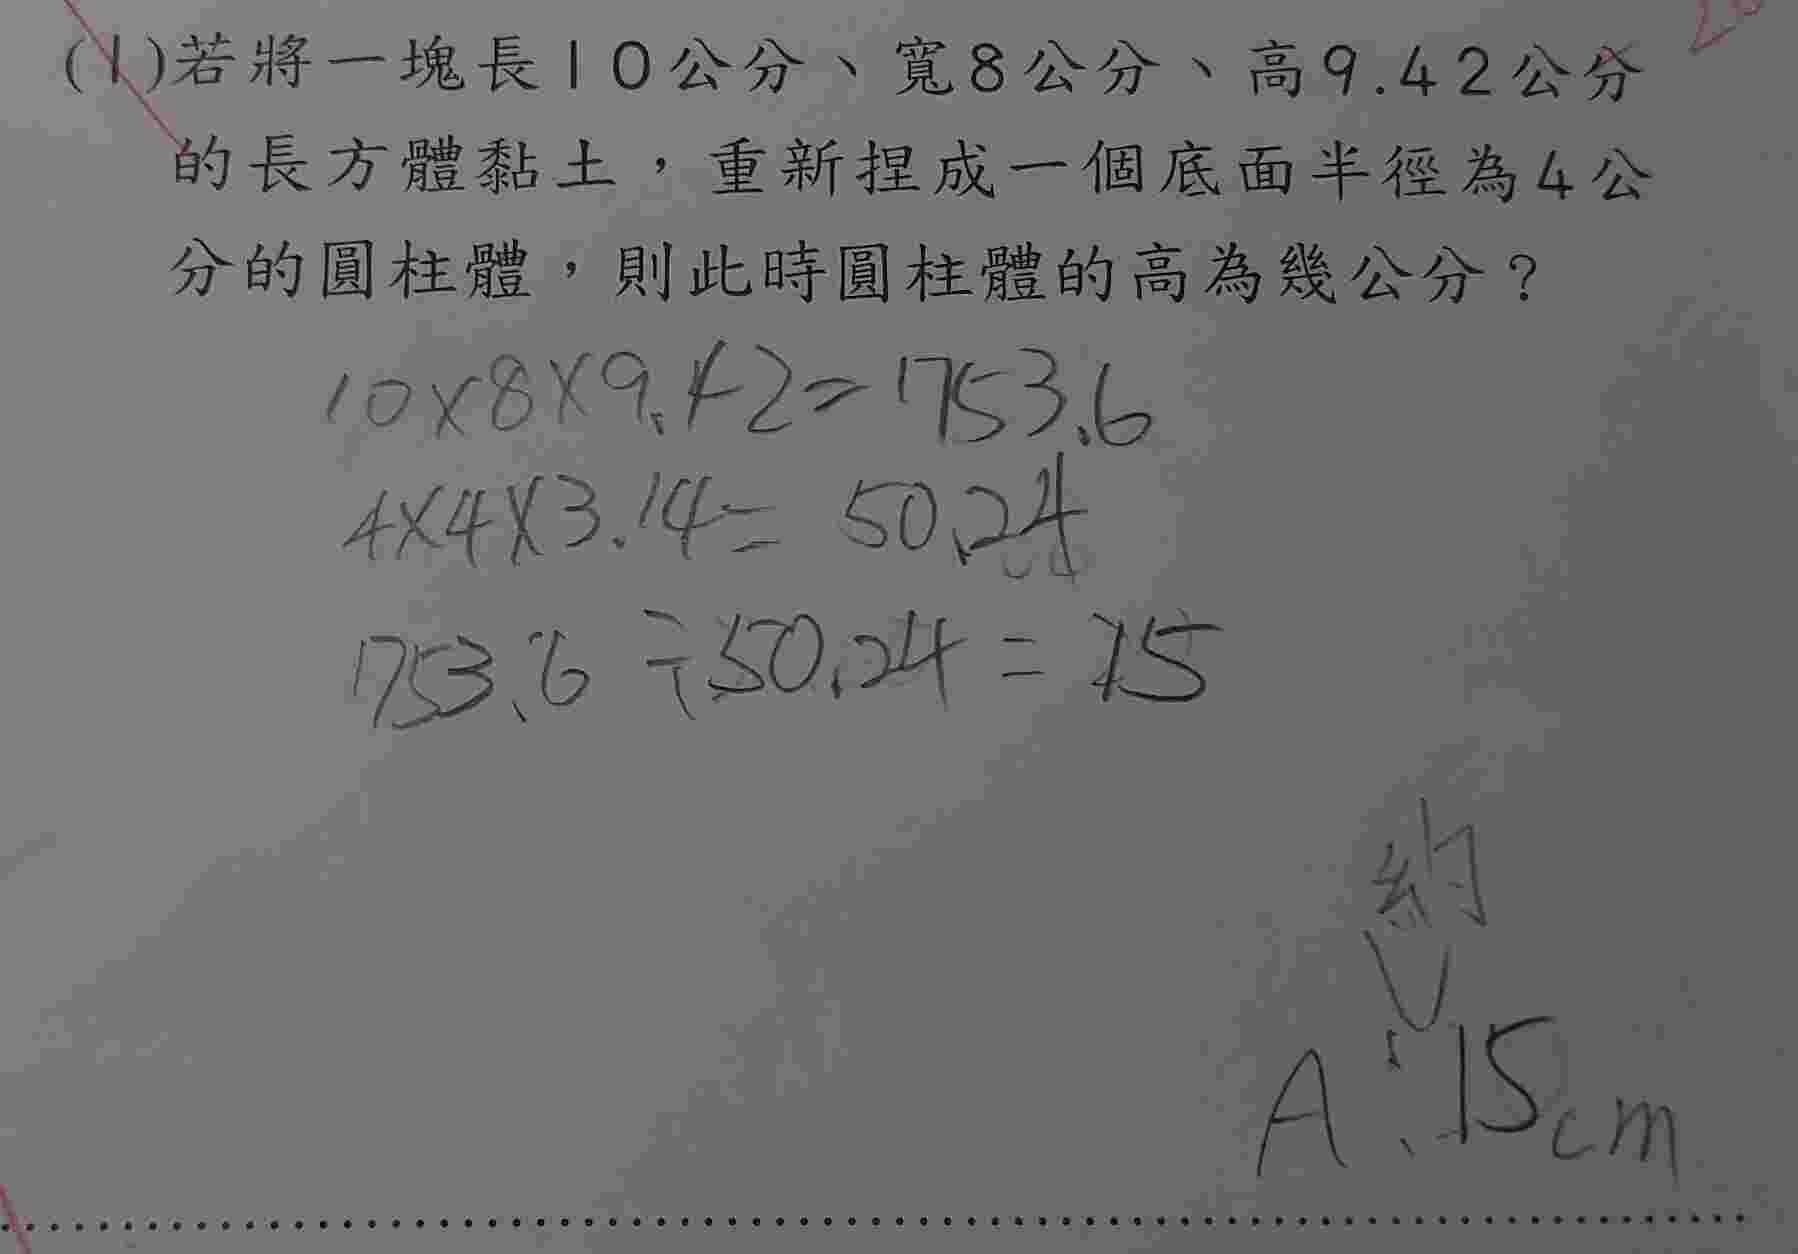 (1)若將一塊長10公分、寬8公分、高9.42公分
的長方體黏土，重新捏成一個底面半徑為4公
分的圓柱體，則此時圓柱體的高為幾公分？
10×8×9.42=753.6
4×4×3.14=50.24
753.6÷50.24=15
約
A:15cm